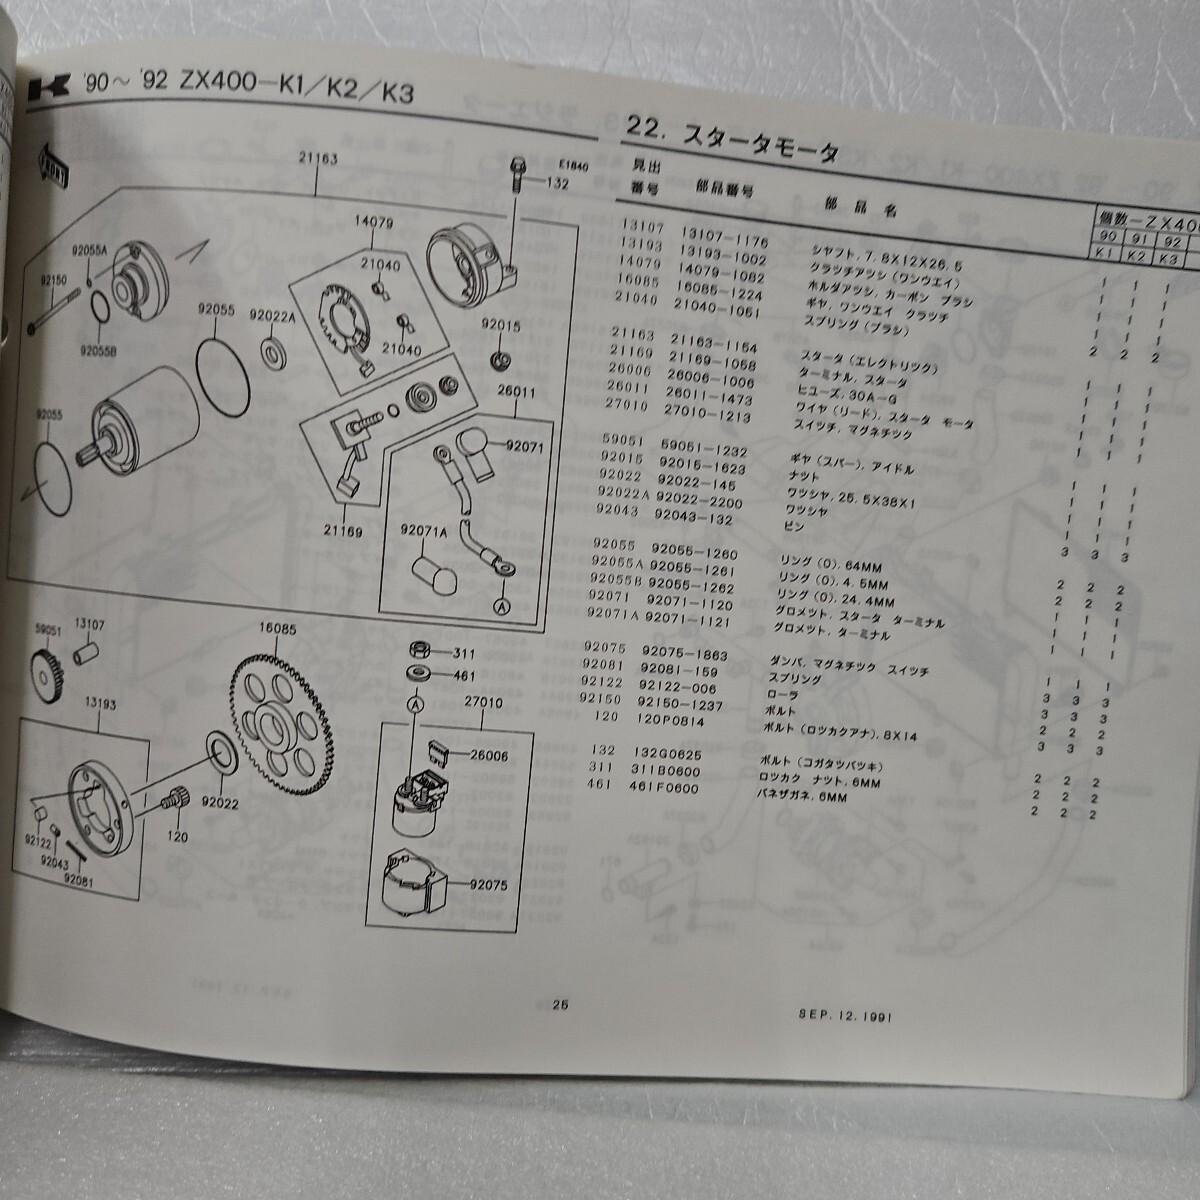 K '90～'92 ZX400-K1/K2/K3
FRONT
21163
E1840
132
14079
21040
21040
92055A
92150
92055B
92055
92022A
92015
26011
92055
92071
21169
92071A
A
59051
13107
16085
311
461
A
27010
13193
26006
92022
120
92122
92043
92081
92075
22. スタータモータ
見出番号 部品番号 部品名 個数-ZX40
90 91 92
K1 K2 K3
13107 13107-1176 シヤフト, 7.8X12X26.5 1 1 1
13193 13193-1002 クラツチアツシ(ワンウエイ) 1 1 1
14079 14079-1082 ホルダアツシ, カーボン ブラシ 1 1 1
16085 16085-1224 ギヤ, ワンウエイ クラツチ 1 1 1
21040 21040-1051 スプリング(ブラシ) 2 2 2
21163 21163-1154 スタータ(エレクトリツク) 1 1 1
21169 21169-1058 ターミナル, スタータ 1 1 1
26006 26006-1006 ヒユーズ, 30A-G 1 1 1
26011 26011-1473 ワイヤ(リード), スタータ モータ 1 1 1
27010 27010-1213 スイツチ, マグネチツク 1 1 1
59051 59051-1232 ギヤ(スパー), アイドル 1 1 1
92015 92015-1623 ナツト 1 1 1
92022 92022-145 ワツシヤ, 25.5X38X1 1 1 1
92022A 92022-2200 ワツシヤ 1 1 1
92043 92043-132 ピン 3 3 3
92055 92055-1260 リング(O), 64MM 2 2 2
92055A 92055-1261 リング(O), 4.5MM 2 2 2
92055B 92055-1262 リング(O), 24.4MM 1 1 1
92071 92071-1120 グロメツト, スタータ ターミナル 1 1 1
92071A 92071-1121 グロメツト, ターミナル 1 1 1
92075 92075-1863 ダンパ, マグネチツク スイツチ 1 1 1
92081 92081-159 スプリング 3 3 3
92122 92122-006 ローラ 3 3 3
92150 92150-1237 ボルト 2 2 2
120 120P0814 ボルト(ロツカクアナ), 8X14 3 3 3
132 132G0625 ボルト(コガタツバツキ) 2 2 2
311 311B0600 ロツカク ナツト, 6MM 2 2 2
461 461F0600 バネザガネ, 6MM 2 2 2
25
SEP.12.1991